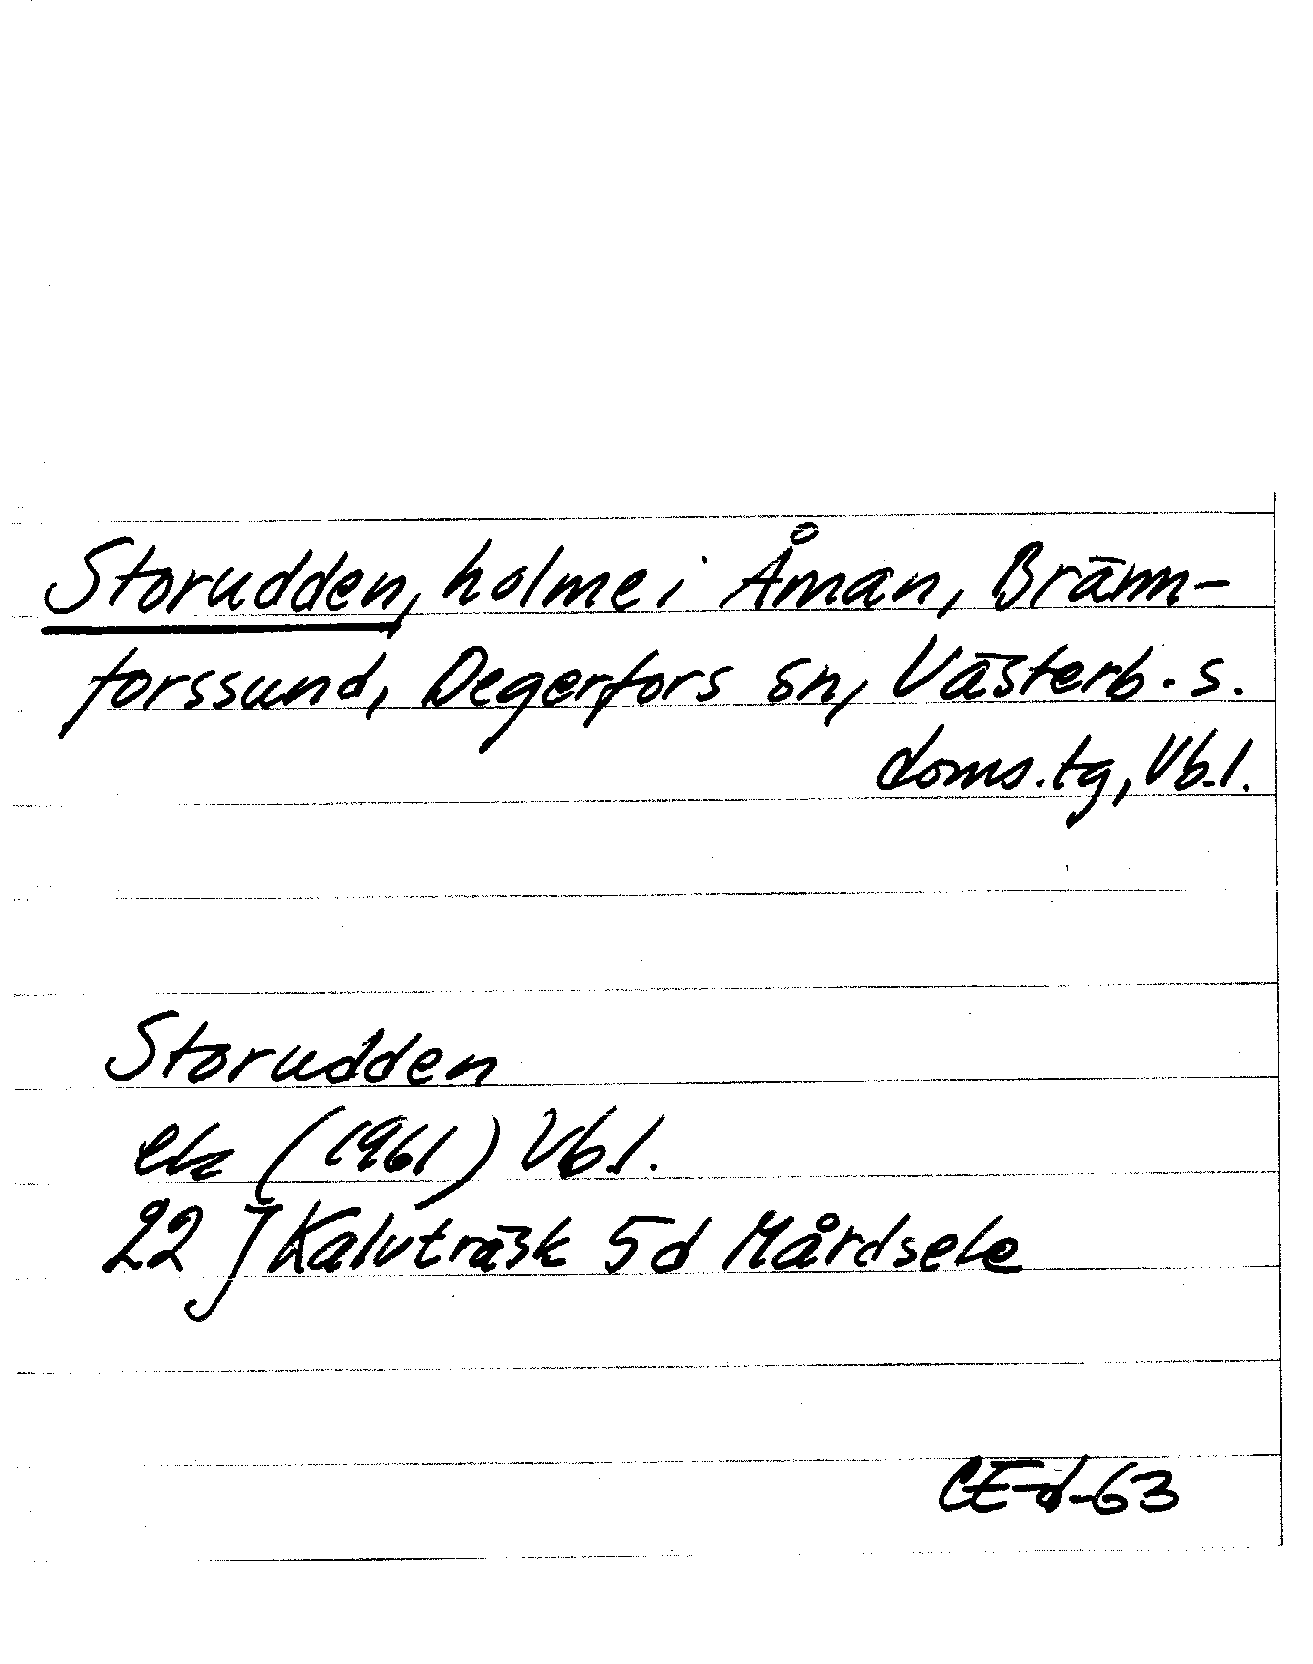 Storudden, holme i Åman, Bränn-
forssund, Degerfors sn, Västerb. s.
doms.tg, Vb.l.
Storudden
ek (1961) Vb.l.
22 J Kalvträsk 5d Mårdsele
CE-d-63